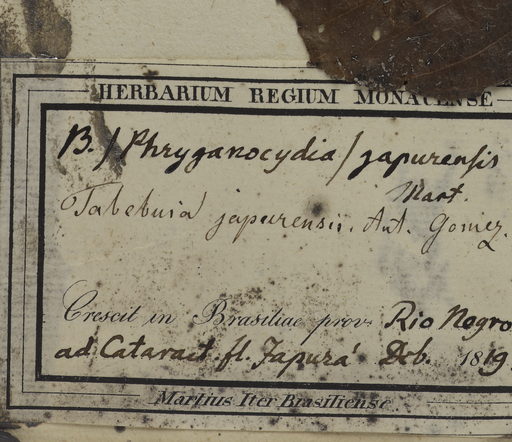 HERBARIUM REGIUM MONACENSE
B./Phryganocydia/japurensis
Mart.
Tabebuia japurensis. Ant. Gomez.
Crescit in Brasiliae prov. Rio Negro
ad Cataract. fl. Japurá Dcb. 1819
Martius Iter Brasiliense